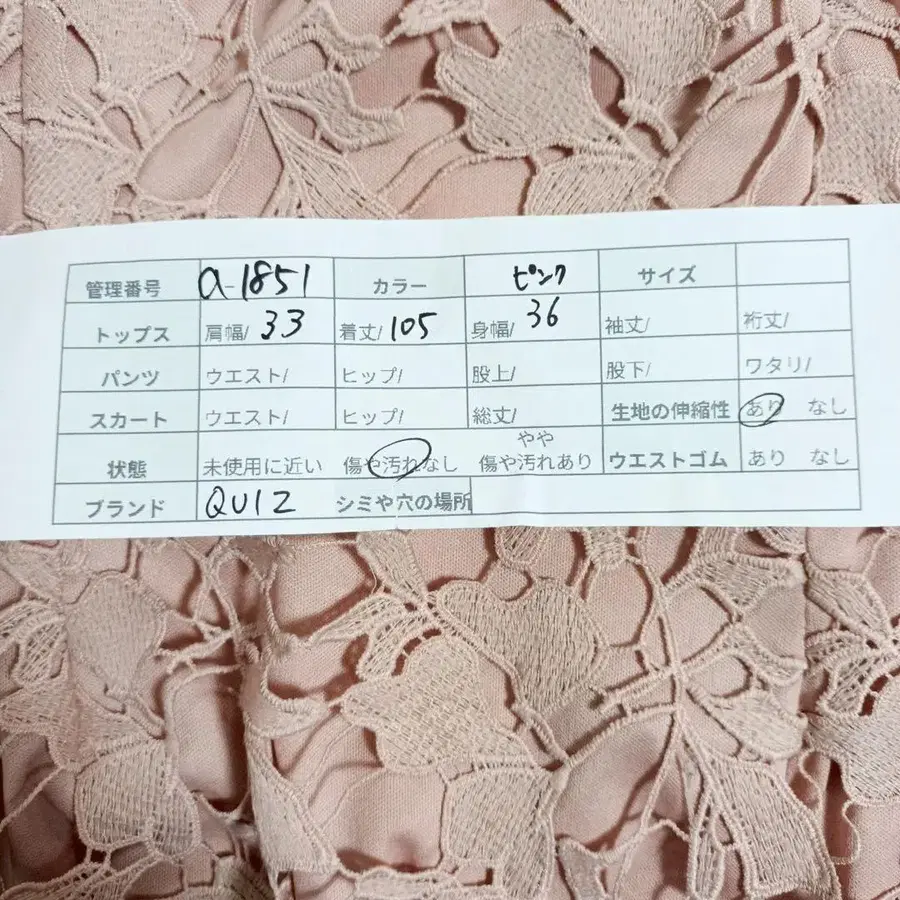 管理番号 a-1851 カラー ピンク サイズ
トップス 肩幅/ 33 着丈/ 105 身幅/ 36 袖丈/ 裄丈/
パンツ ウエスト/ ヒップ/ 股上/ 股下/ ワタリ/
スカート ウエスト/ ヒップ/ 総丈/ 生地の伸縮性 あり なし
状態 未使用に近い 傷や汚れなし やや傷や汚れあり ウエストゴム あり なし
ブランド QUIZ シミや穴の場所